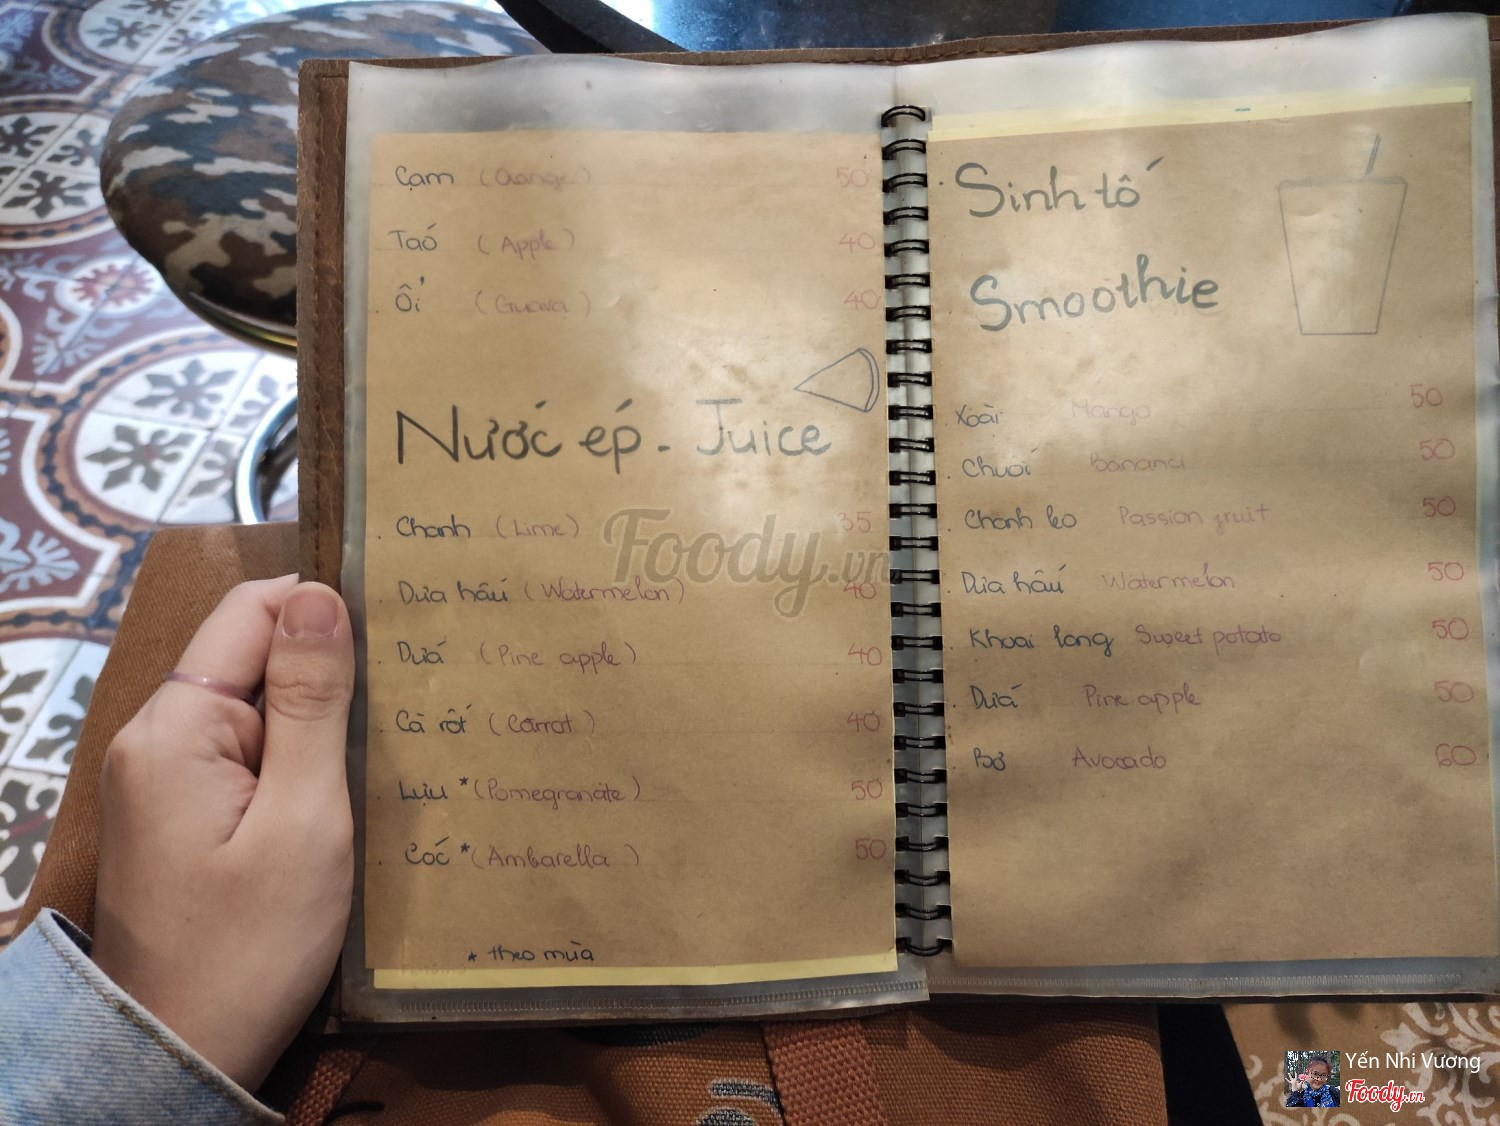 Cam (Orange) 50
Táo (Apple) 40
Ổi (Guava) 40
Nước ép - Juice
Chanh (Lime) 35
Dưa hấu (Watermelon) 40
Dứa (Pine apple) 40
Cà rốt (Carrot) 40
Lựu * (Pomegranate) 50
Cóc * (Ambarella) 50
* theo mùa
Sinh tố
Smoothie
Xoài Mango 50
Chuối Banana 50
Chanh leo Passion fruit 50
Dưa hấu Watermelon 50
Khoai lang Sweet potato 50
Dứa Pine apple 50
Bơ Avocado 60
Foody.vn
Yến Nhi Vương
Foody.vn